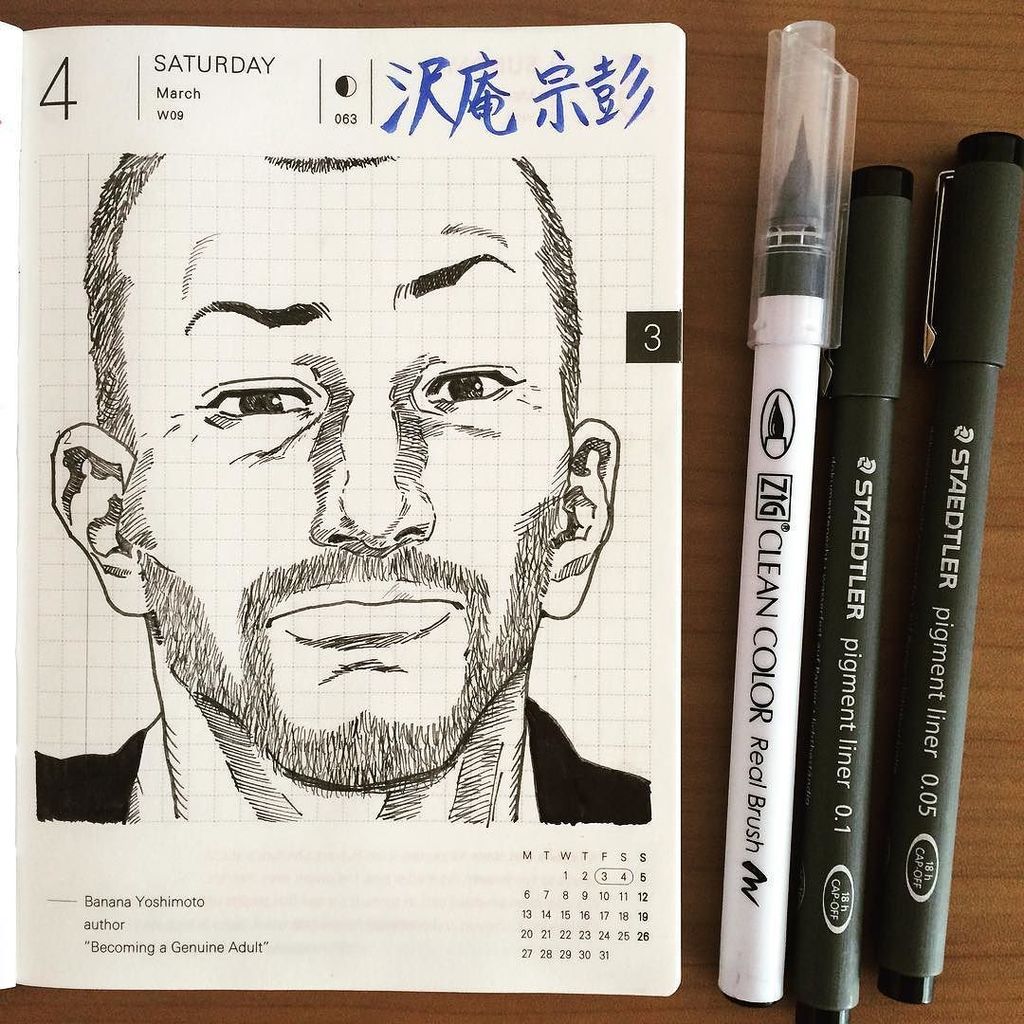 4
SATURDAY
March
W09
063
沢庵 宗彭
3
Banana Yoshimoto
author
"Becoming a Genuine Adult"
M T W T F S S
1 2 3 4 5
6 7 8 9 10 11 12
13 14 15 16 17 18 19
20 21 22 23 24 25 26
27 28 29 30 31
ZIG® CLEAN COLOR Real Brush
STAEDTLER pigment liner 0.1
18 h
CAP-OFF
STAEDTLER pigment liner 0.05
18 h
CAP-OFF